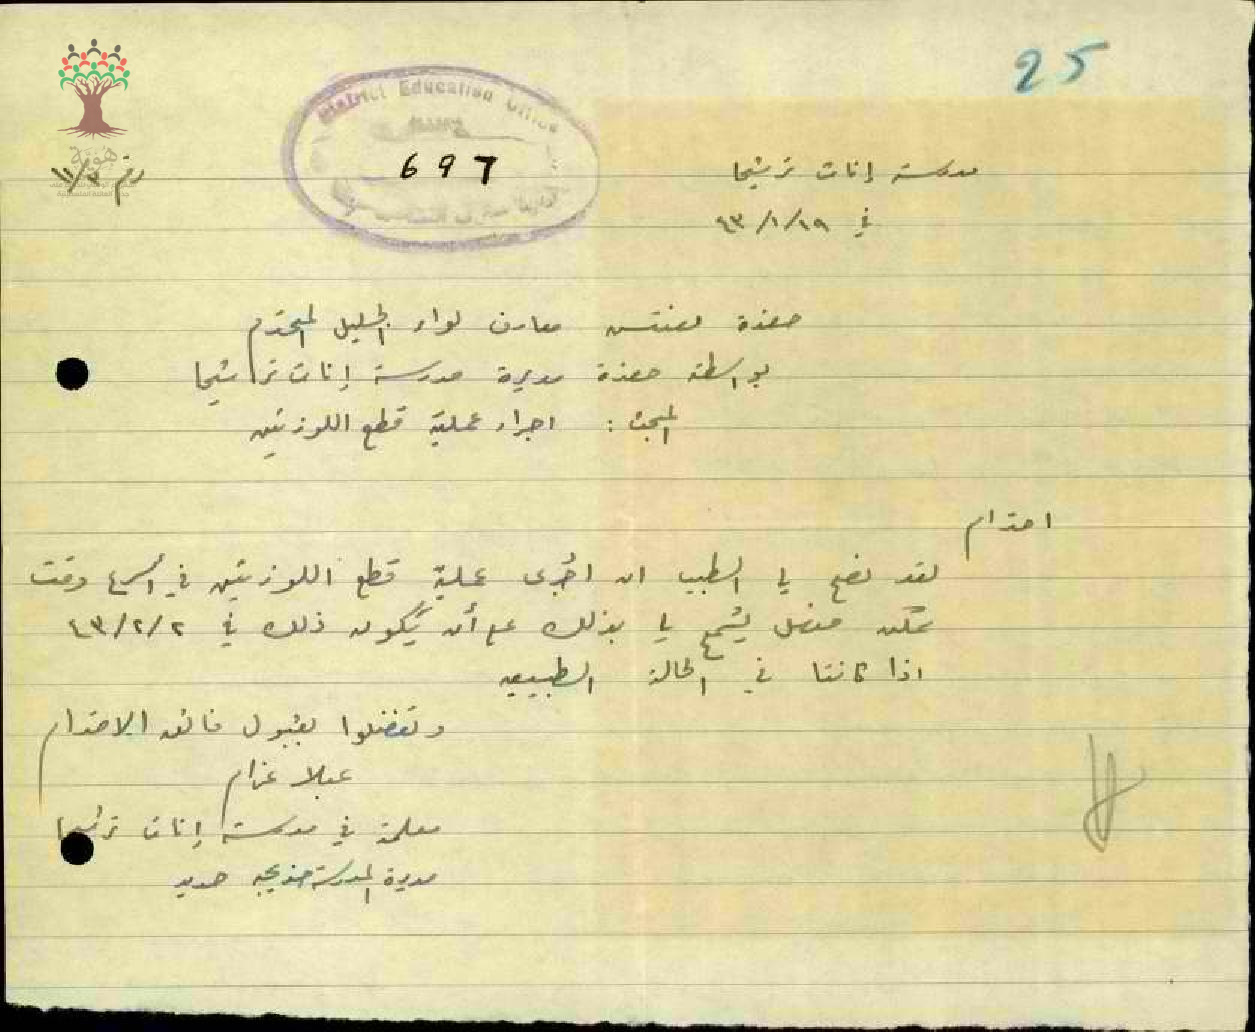 25
District Education Office
697
هوية
رقم ١١/٢
مدرسة إناث ترشيحا
في ٤٣/١/١٩
حضرة مفتش معارف لواء الجليل المحترم
بواسطة حضرة مديرة مدرسة إناث ترشيحا
المبحث : اجراء عملية قطع اللوزتين
احترام
لقد نصح لي الطبيب ان اجرى عملية قطع اللوزتين في أسرع وقت
ممكن فهل يسمح لي بذلك مع أن يكون ذلك في ٤٣/٢/٢
اذا كانتا في الحالة الطبيعيه
وتفضلوا بقبول فائق الاحترام
عبلا عزام
معلمة في مدرسة إناث ترشيحا
مديرة المدرسة خديجه حديد